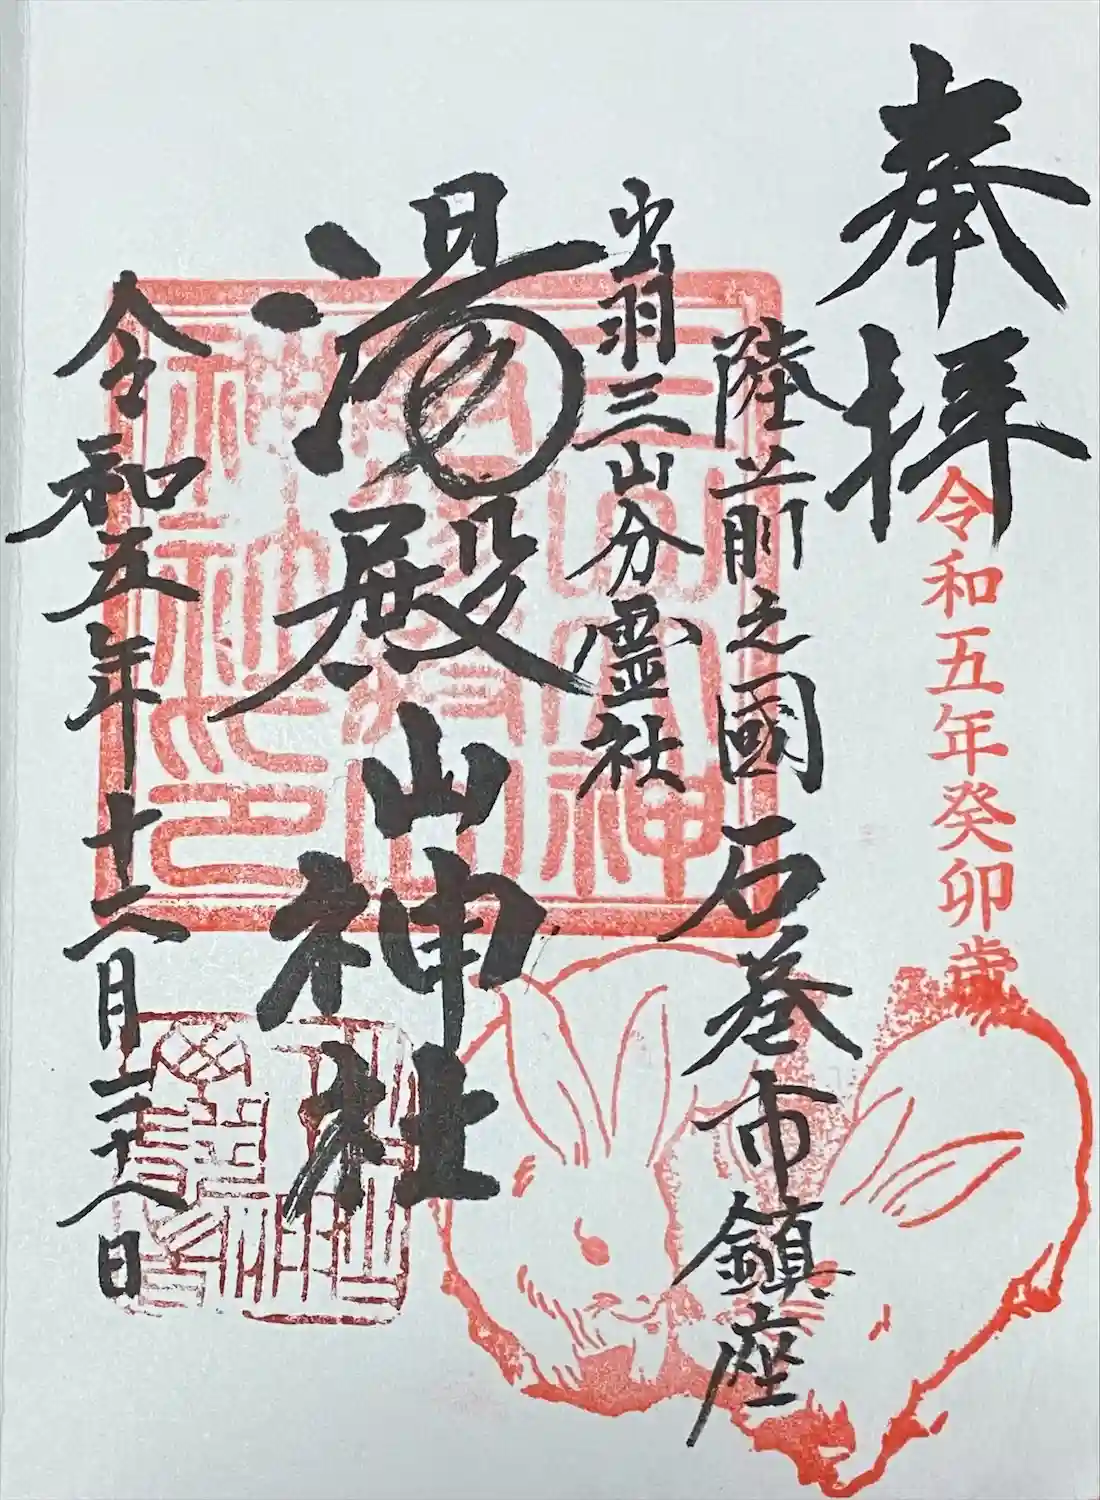 奉拝
令和五年癸卯歳
陸前之國 石巻市鎮座
出羽三山分霊社
湯殿山神社
令和五年十二月二十八日